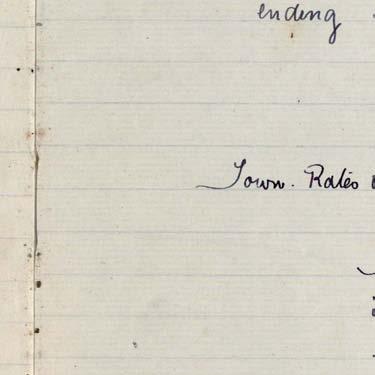 ending
Town. Rates